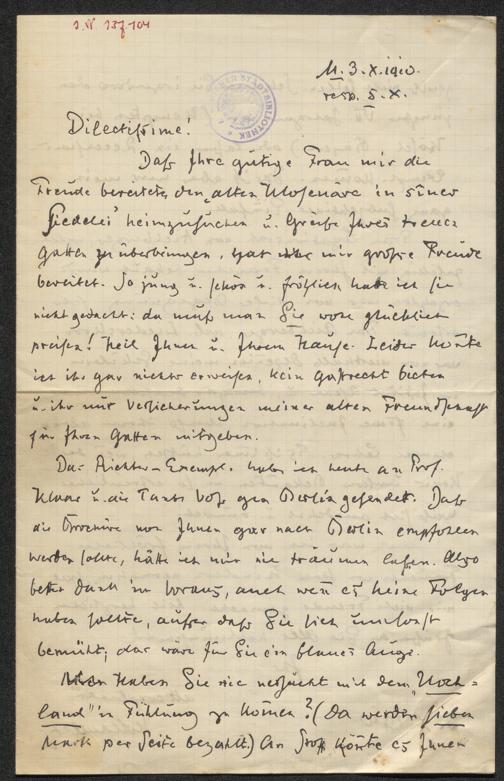 I. N. 137.104
M. 3. X. 1910.
resp. 5. X.
Dilectissime!
Daß Ihre gütige Frau mir die
Freude bereitete, den „alten in seiner
Siedelei" heimzusuchen u. Grüße Ihres treuen
Gatten zu überbringen, hat mir große Freude
bereitet. So jung u. schön u. fröhlich hatte ich sie
nicht gedacht: da muß man Sie wohl glücklich
preisen! Heil Ihnen u. Ihrem Hause. Leider konnte
ich ihr gar nichts erweisen, kein Gastrecht bieten
u. ihr nur Versicherungen meiner alten Freundschaft
für Ihren Gatten mitgeben.
Das Exempl. habe ich heute an Prof.
Klaar u. die Tante Voß gen Berlin gesendet. Daß
die Brochüre von Ihnen gar nach Berlin empfohlen
werden sollte, hätte ich mir nie träumen laßen. Also
besten Dank im Voraus, auch wenn es keine Folgen
haben sollte, außer daß Sie sich umsonst
bemüht; das wäre für Sie ein blaues Auge.
Haben Sie nie versucht mit dem „Hoch=
land" in Fühlung zu kommen? (Da werden sieben
Mark per Seite bezahlt.) An Stoff könnte es Ihnen